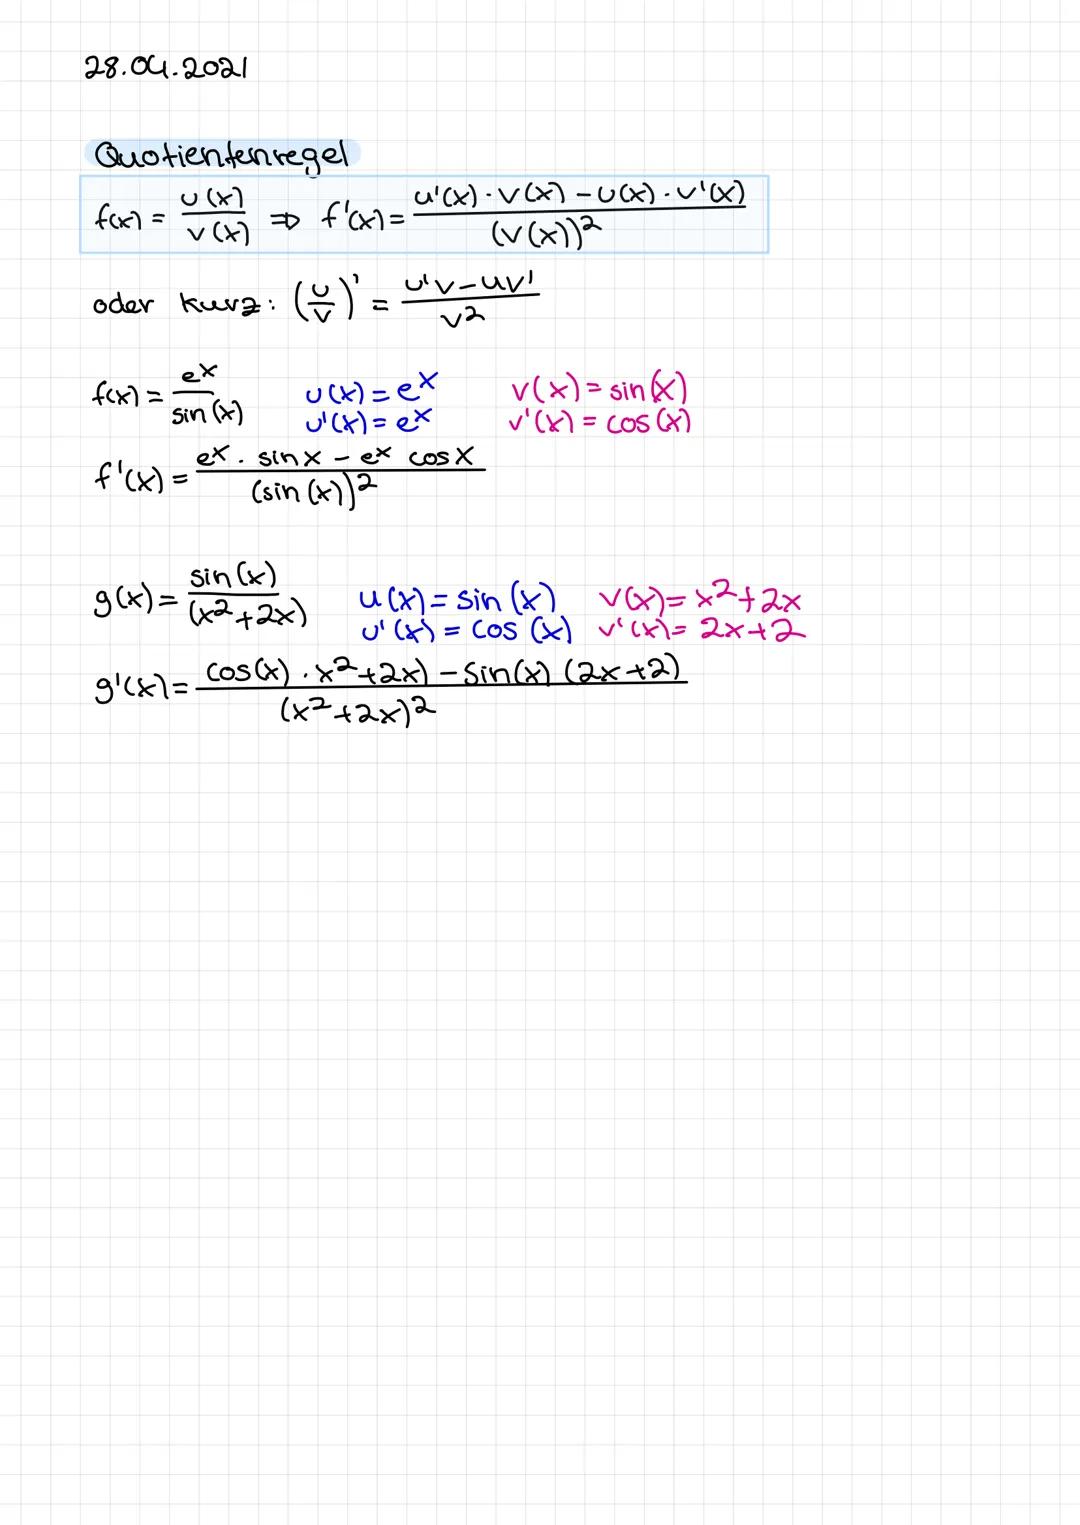 28.04.2021
Quotientenregel
f(x) = u(x)/v(x) ⇒ f'(x) = u'(x)·v(x) – u(x)·v'(x)/(v(x))²
oder kurz: (u/v)' = u'v – uv'/v²
f(x) = eˣ/sin(x) u(x) = eˣ v(x) = sin(x)
u'(x) = eˣ v'(x) = cos(x)
f'(x) = eˣ · sin x – eˣ cos x/(sin(x))²
g(x) = sin(x)/(x²+2x) u(x) = sin(x) v(x) = x²+2x
u'(x) = cos(x) v'(x) = 2x+2
g'(x) = cos(x) · x²+2x) – sin(x) (2x+2)/(x²+2x)²